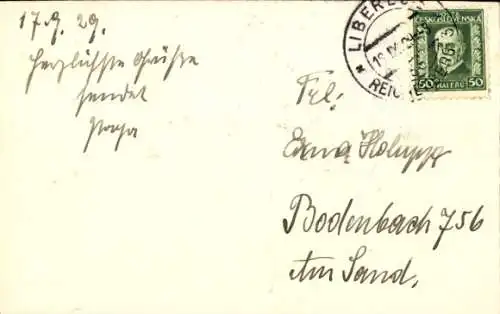 17.9.29.
Herzlichste Grüße
sendet
Papa
LIBEREC
19.IX.29
REICHENBERG
ČESKOSLOVENSKA
50 HALÉŘŮ 50
Frl:
Erna
Bodenbach 756
Am Sand.